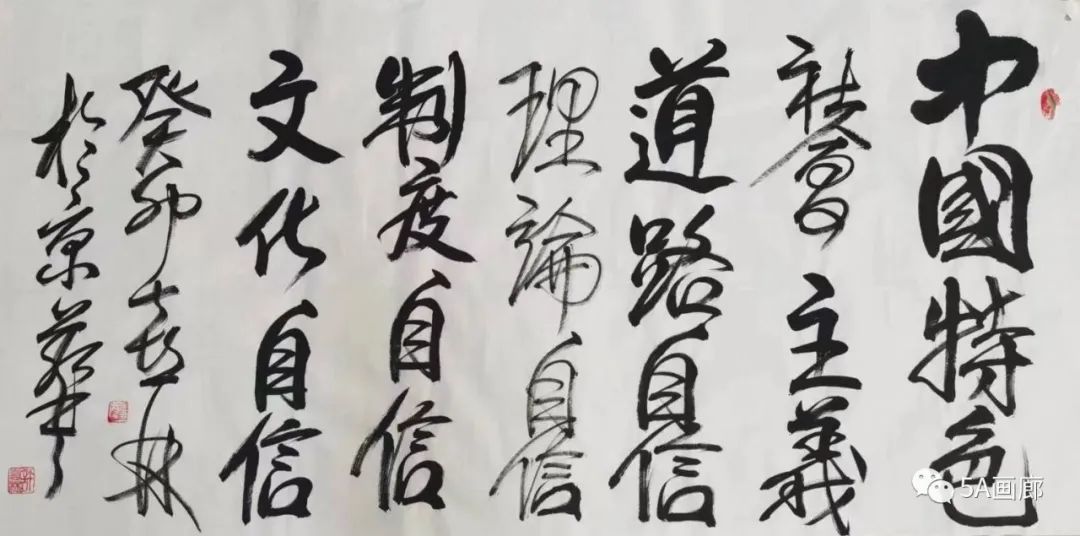 中國特色
社會主義
道路自信
理論自信
制度自信
文化自信
癸卯
於京華
5A画廊